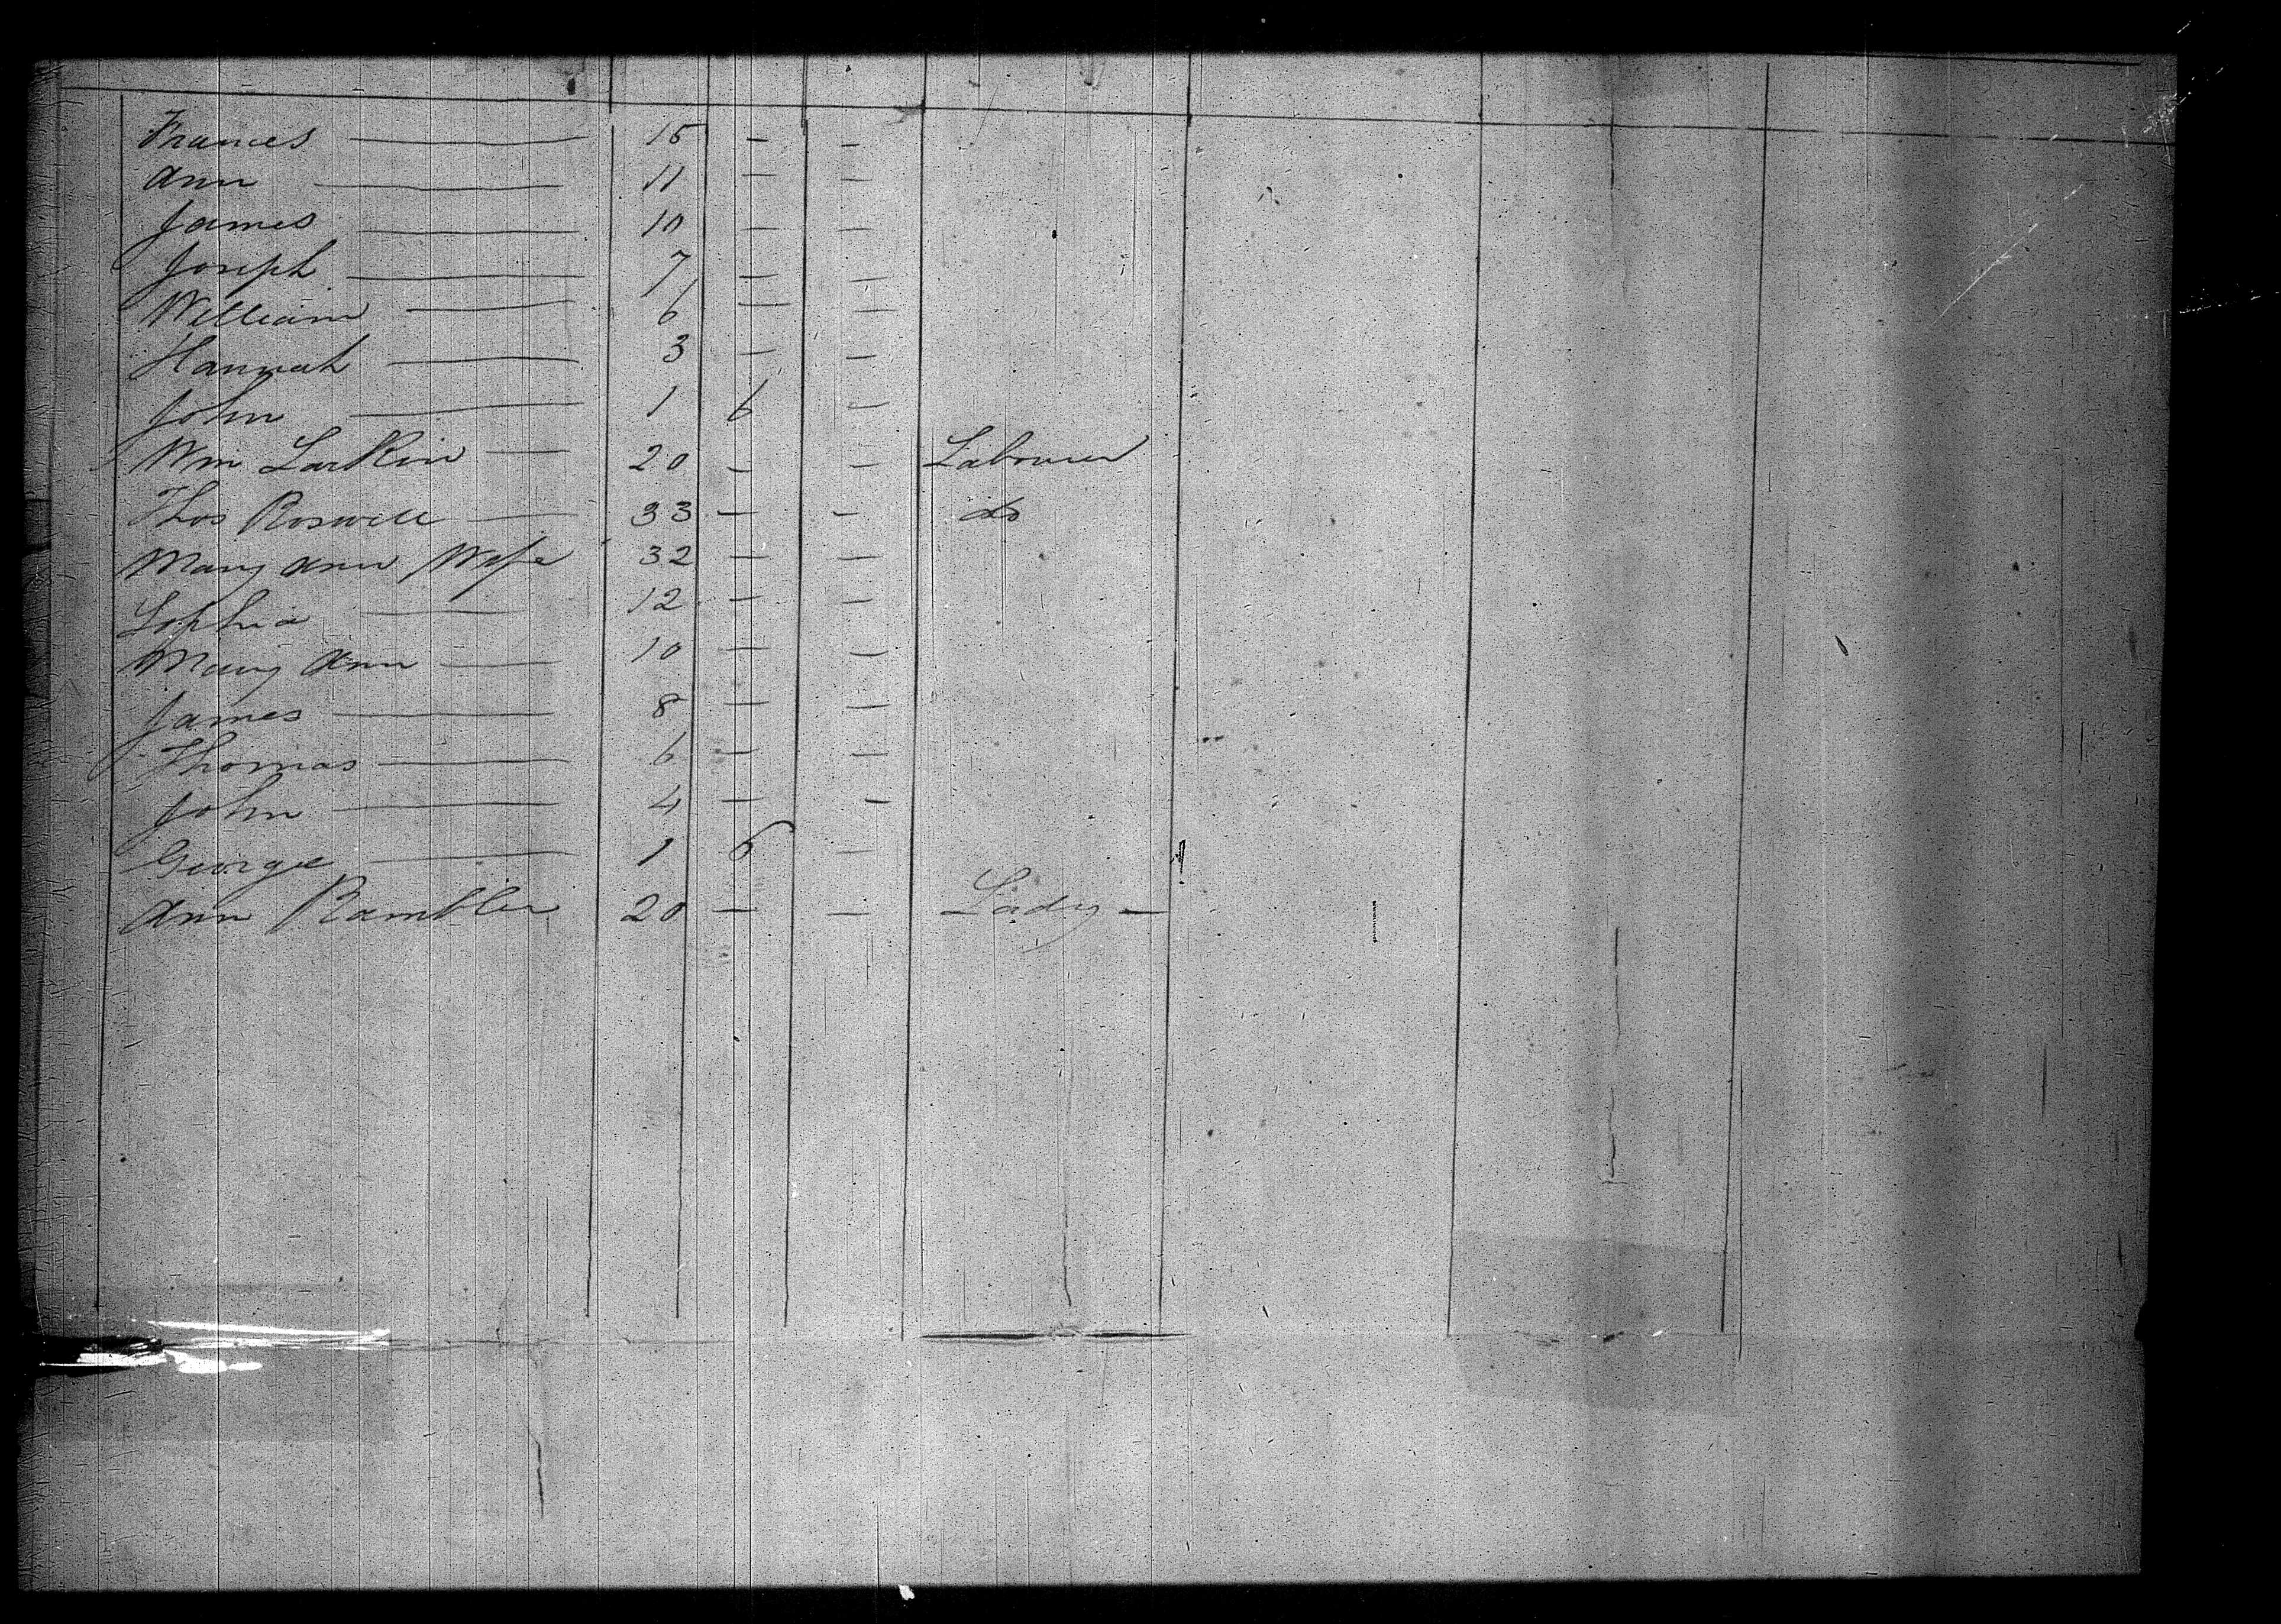 Frances — 15 — —
Ann — 11 — —
James — 10 — —
Joseph — 7 — —
William — 6 — —
Hannah — 3 — —
John — 1 6 —
Wm Larkin — 20 — — Labourer
Thos Roswell — 33 — — do
Mary Ann Wife 32 — —
Sophia — 12 — —
Mary Ann — 10 — —
James — 8 — —
Thomas — 6 — —
John — 4 — —
George — 1 6 —
Ann Rambler 20 — — Lady —